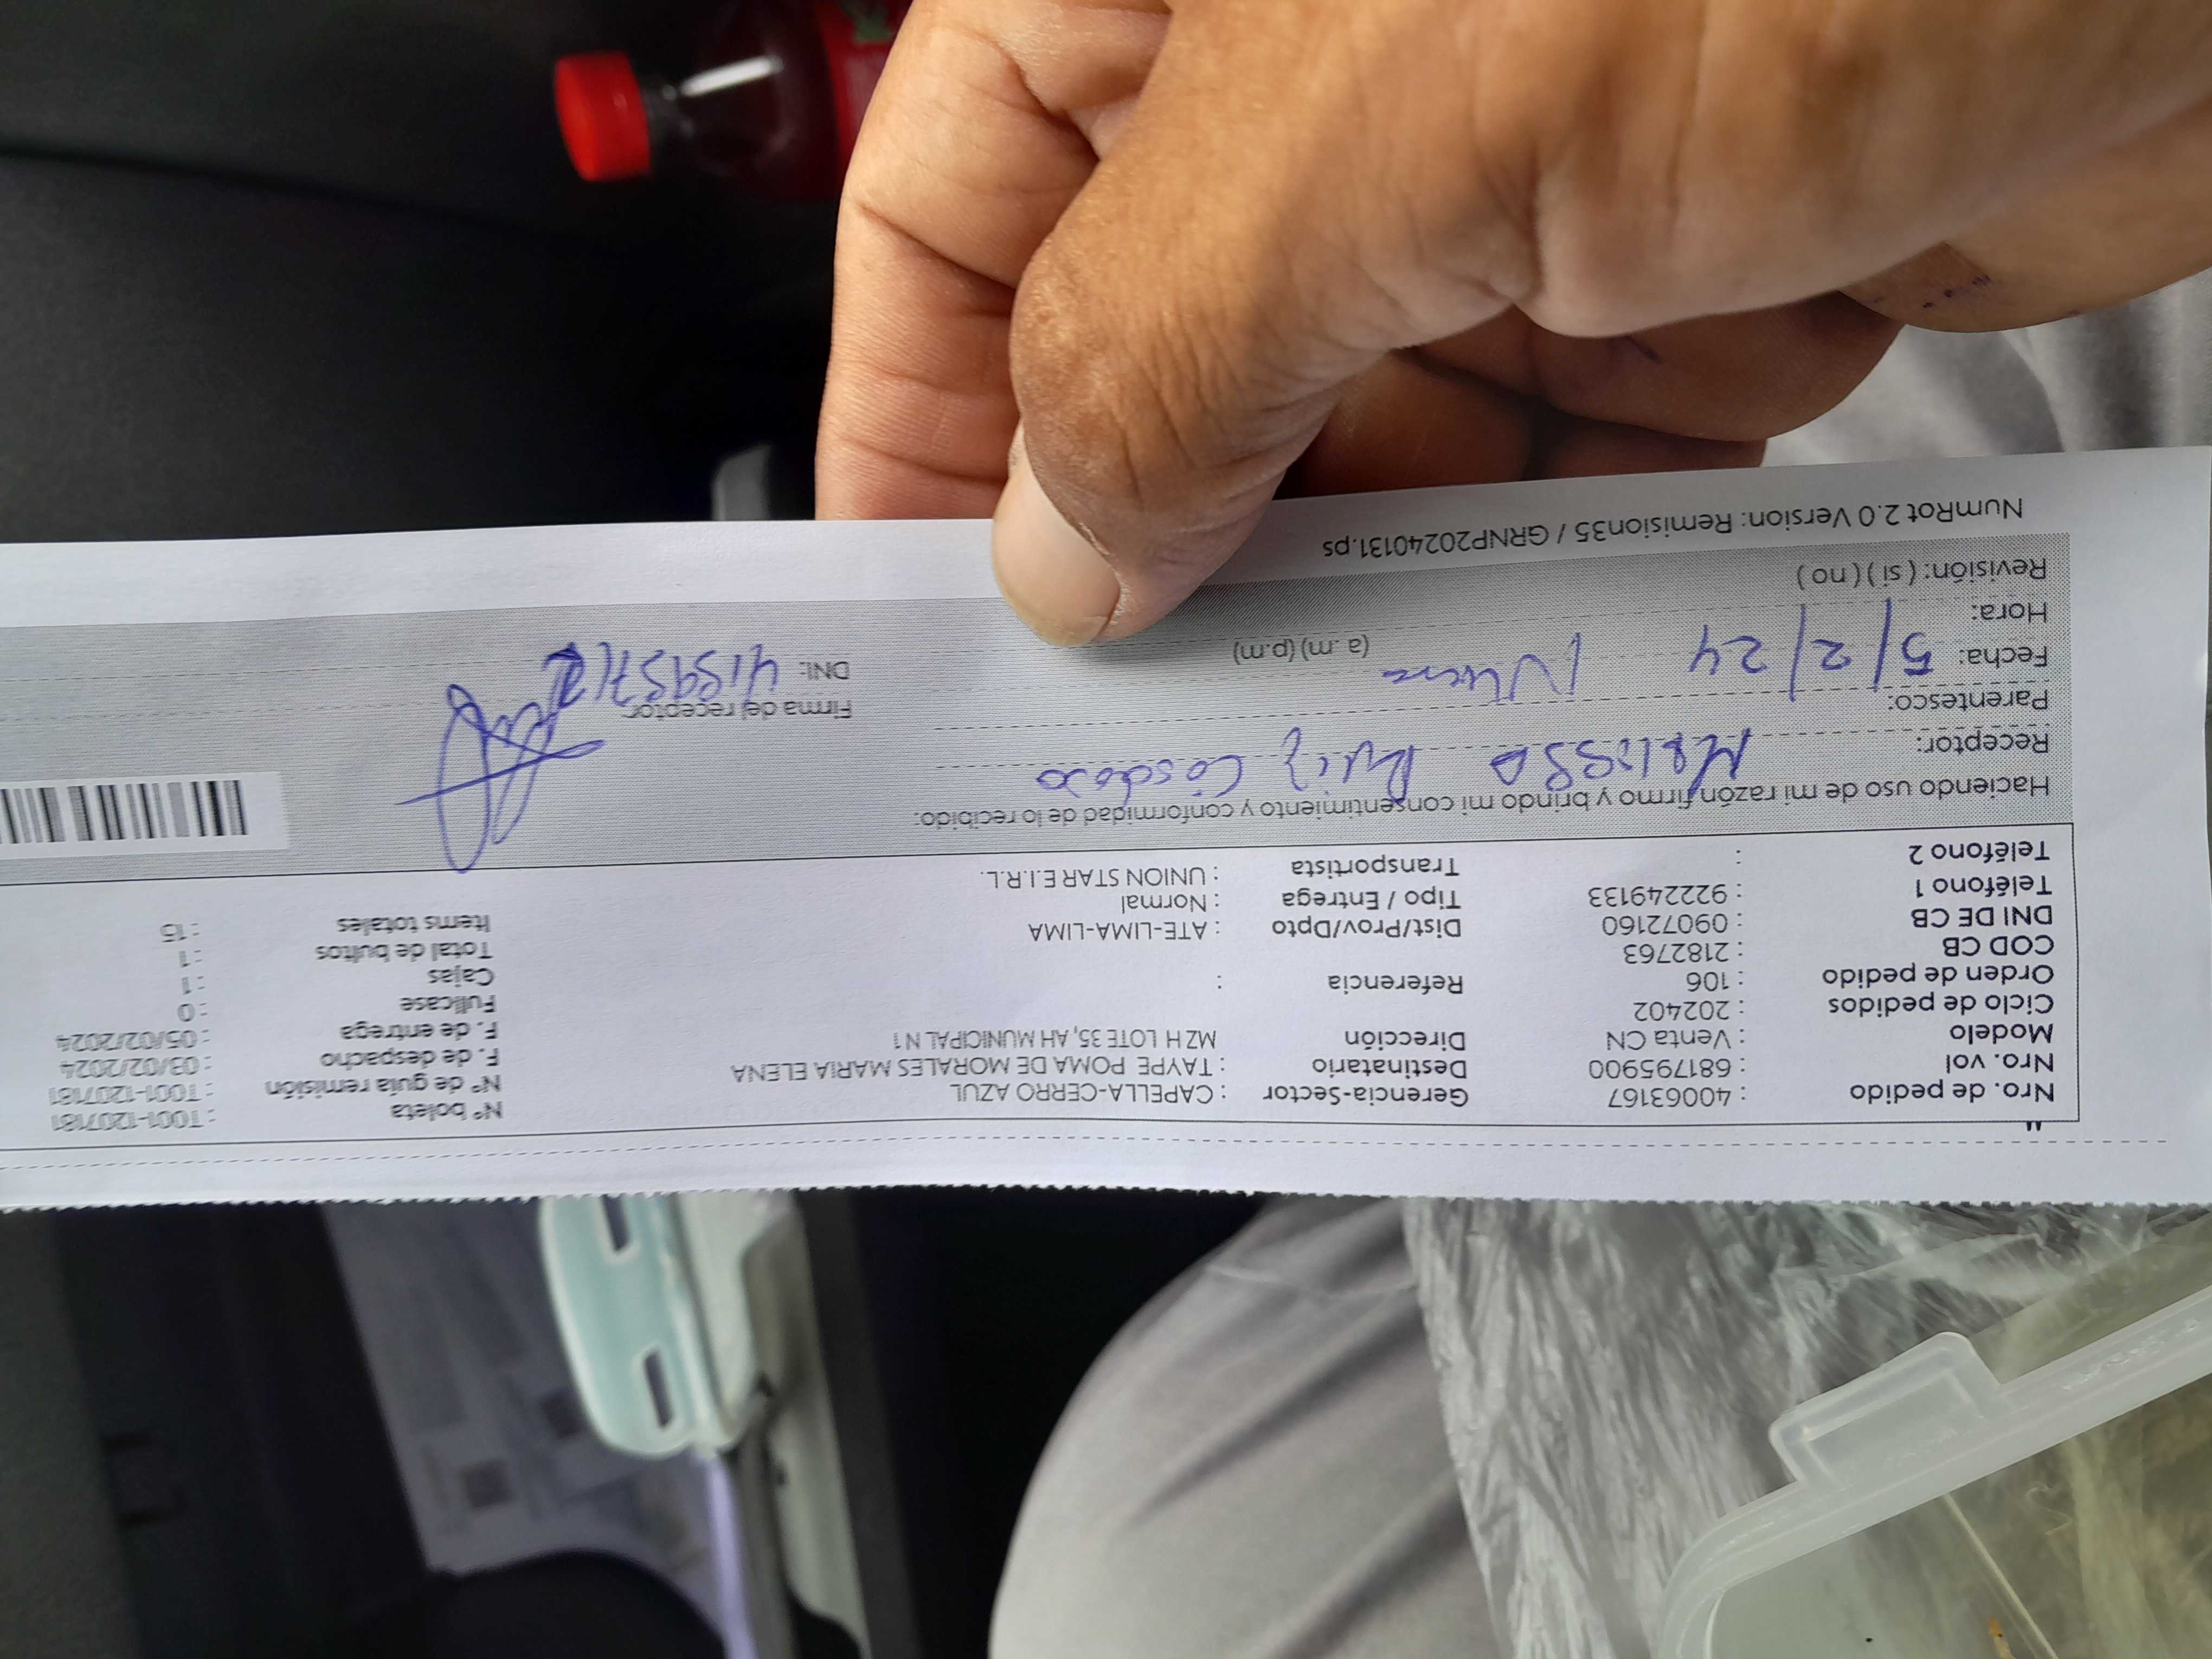 Nro. de pedido : 40063167 Gerencia-Sector : CAPELLA-CERRO AZUL N° boleta : T001-1207181
Nro. vol : 681795900 Destinatario : TAYPE POMA DE MORALES MARIA ELENA N° de guía remisión : T001-1207181
Modelo : Venta CN Dirección MZ H LOTE 35, AH MUNICIPAL N 1 F. de despacho : 03/02/2024
Ciclo de pedidos : 202402 F. de entrega : 05/02/2024
Orden de pedido : 106 Referencia : Fullcase : 0
COD CB : 2182763 Cajas : 1
DNI DE CB : 09072160 Dist/Prov/Dpto : ATE-LIMA-LIMA Total de bultos : 1
Teléfono 1 : 922249133 Tipo / Entrega : Normal Items totales : 15
Teléfono 2 : Transportista : UNION STAR E.I.R.L.
Haciendo uso de mi razón firmo y brindo mi consentimiento y conformidad de lo recibido:
Receptor: Melissa Ruiz
Parentesco: Firma del receptor
Fecha: 5/2/24 DNI:
Hora: (a .m) (p.m)
Revisión: ( si ) ( no )
NumRot 2.0 Version: Remision35 / GRNP20240131.ps